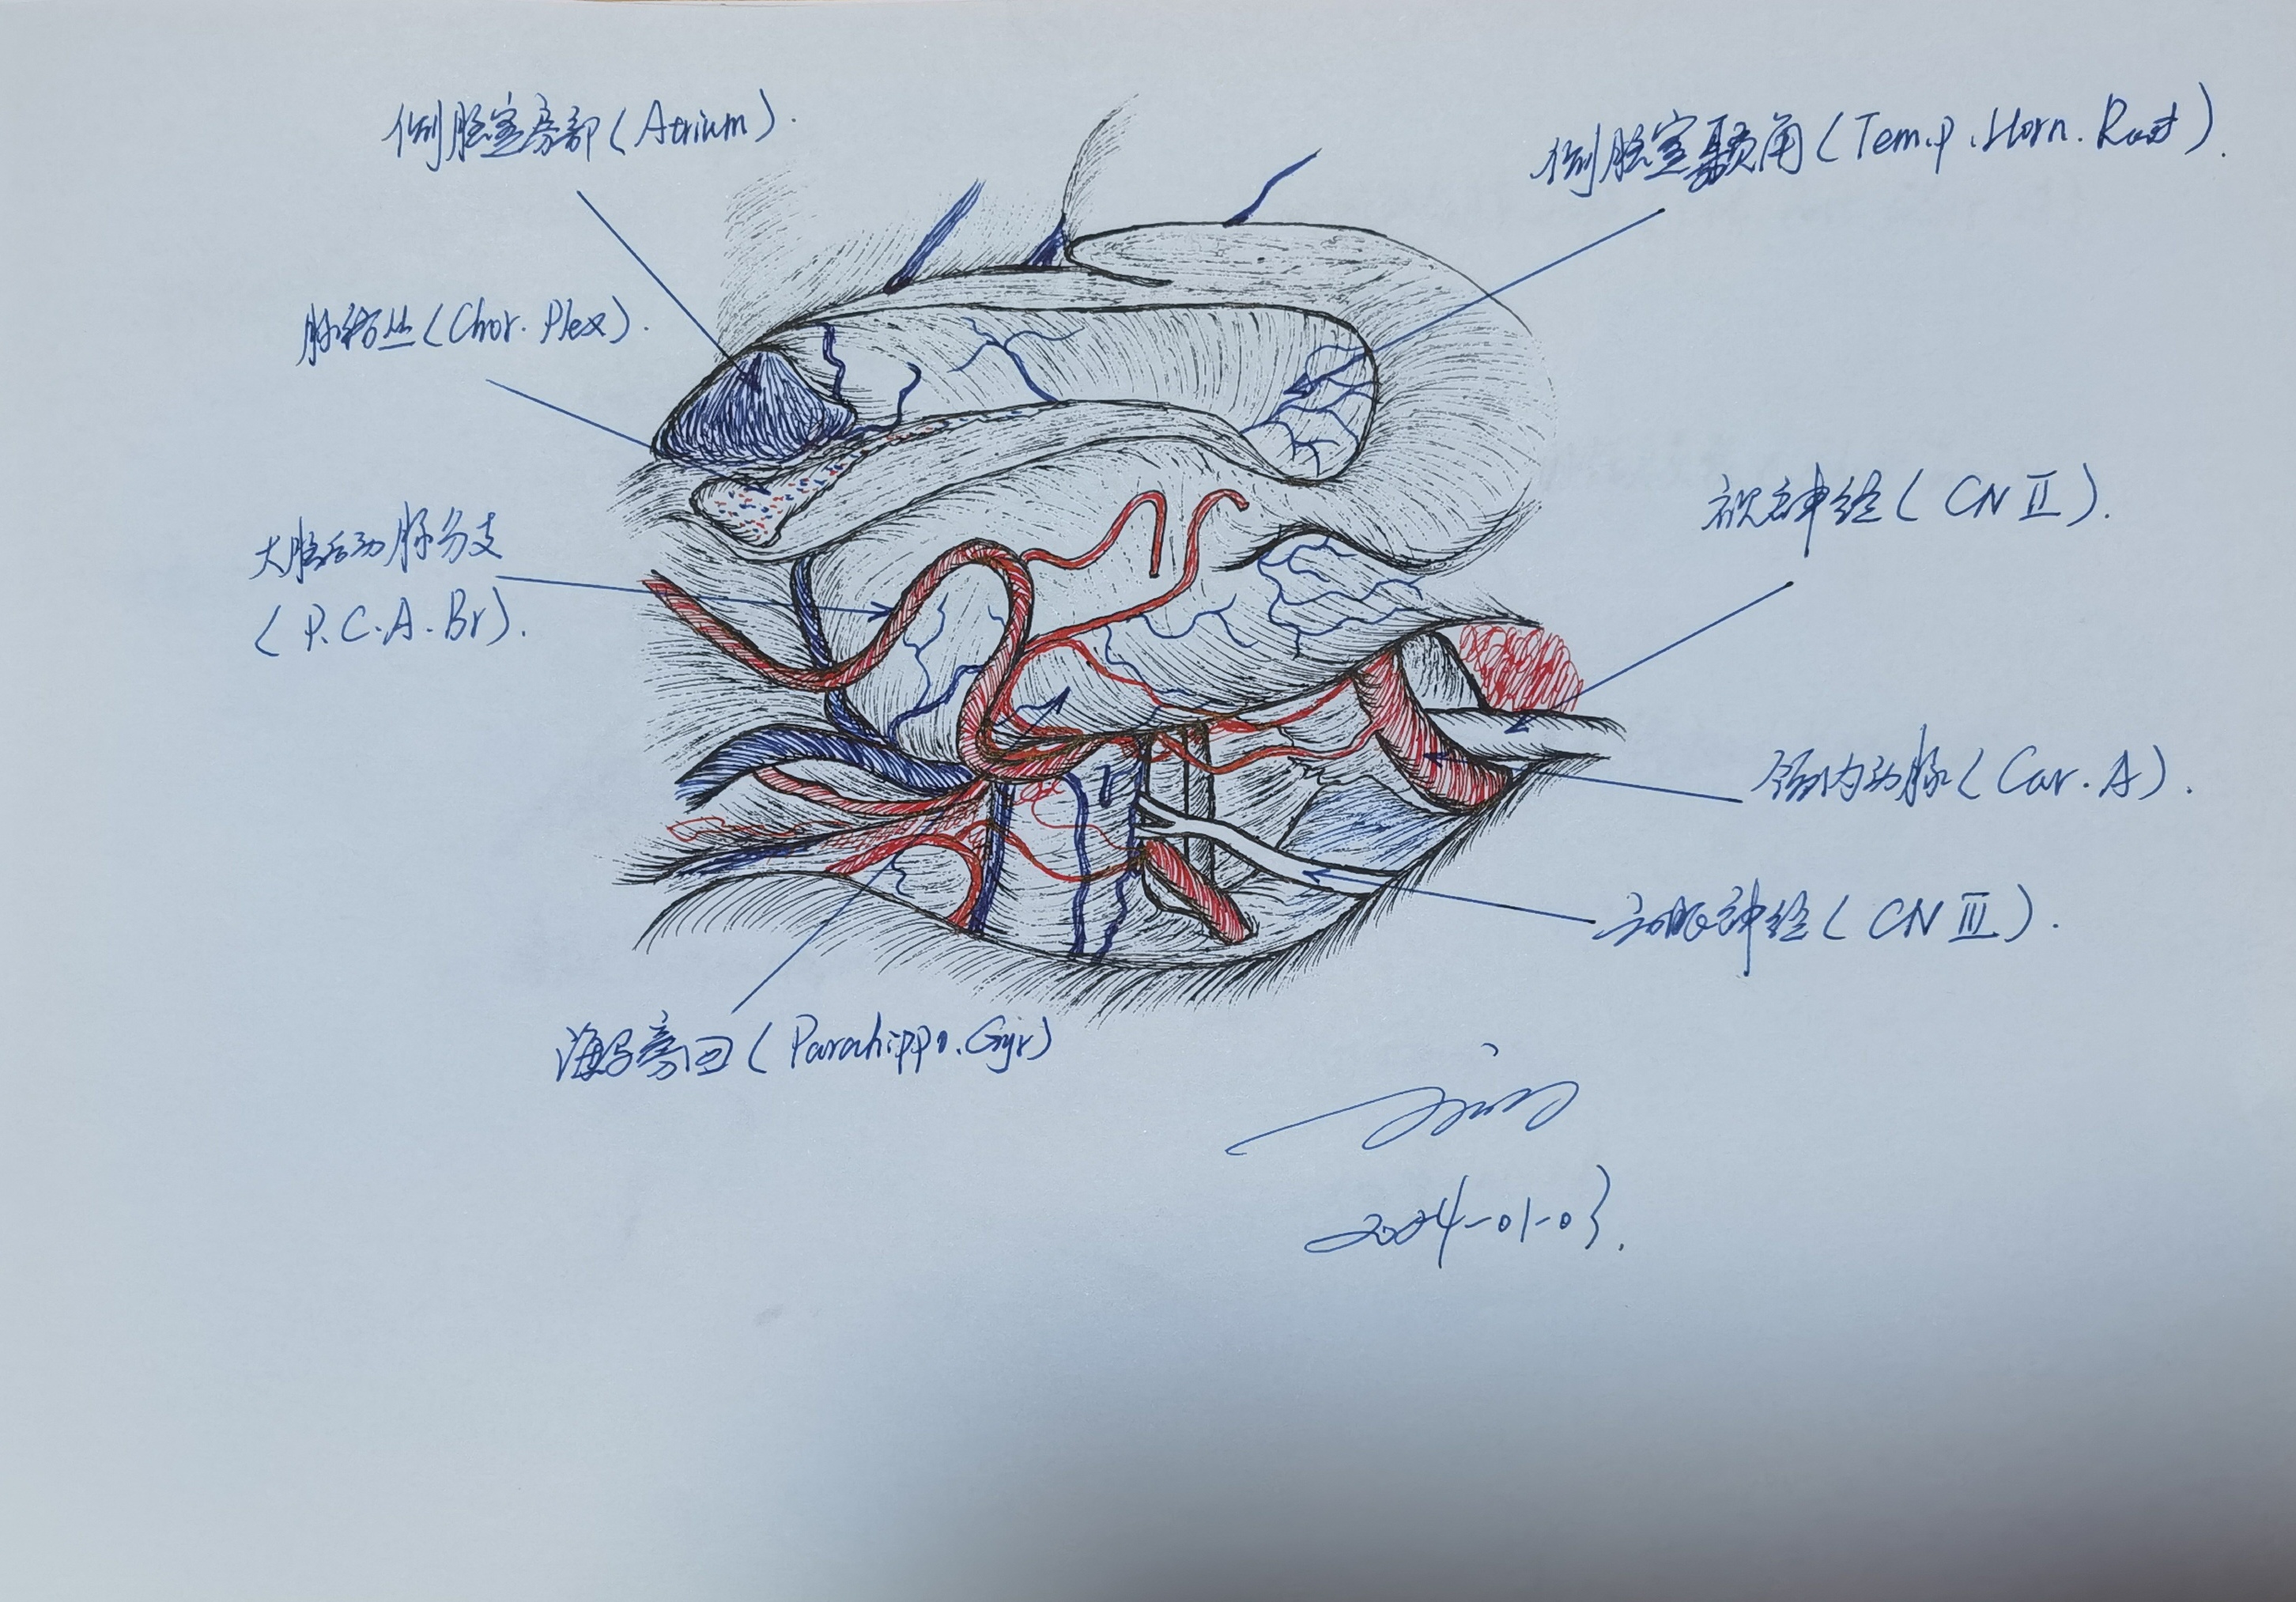 侧脑室房部(Atrium).
侧脑室颞角(Temp.Horn.Roof).
脉络丛(Chor.Plex).
视神经(CN Ⅱ).
大脑后动脉分支
(P.C.A.Br).
颈内动脉(Car.A).
动眼神经(CN Ⅲ).
海马旁回(Parahippo.Gyr)
2024-01-03.